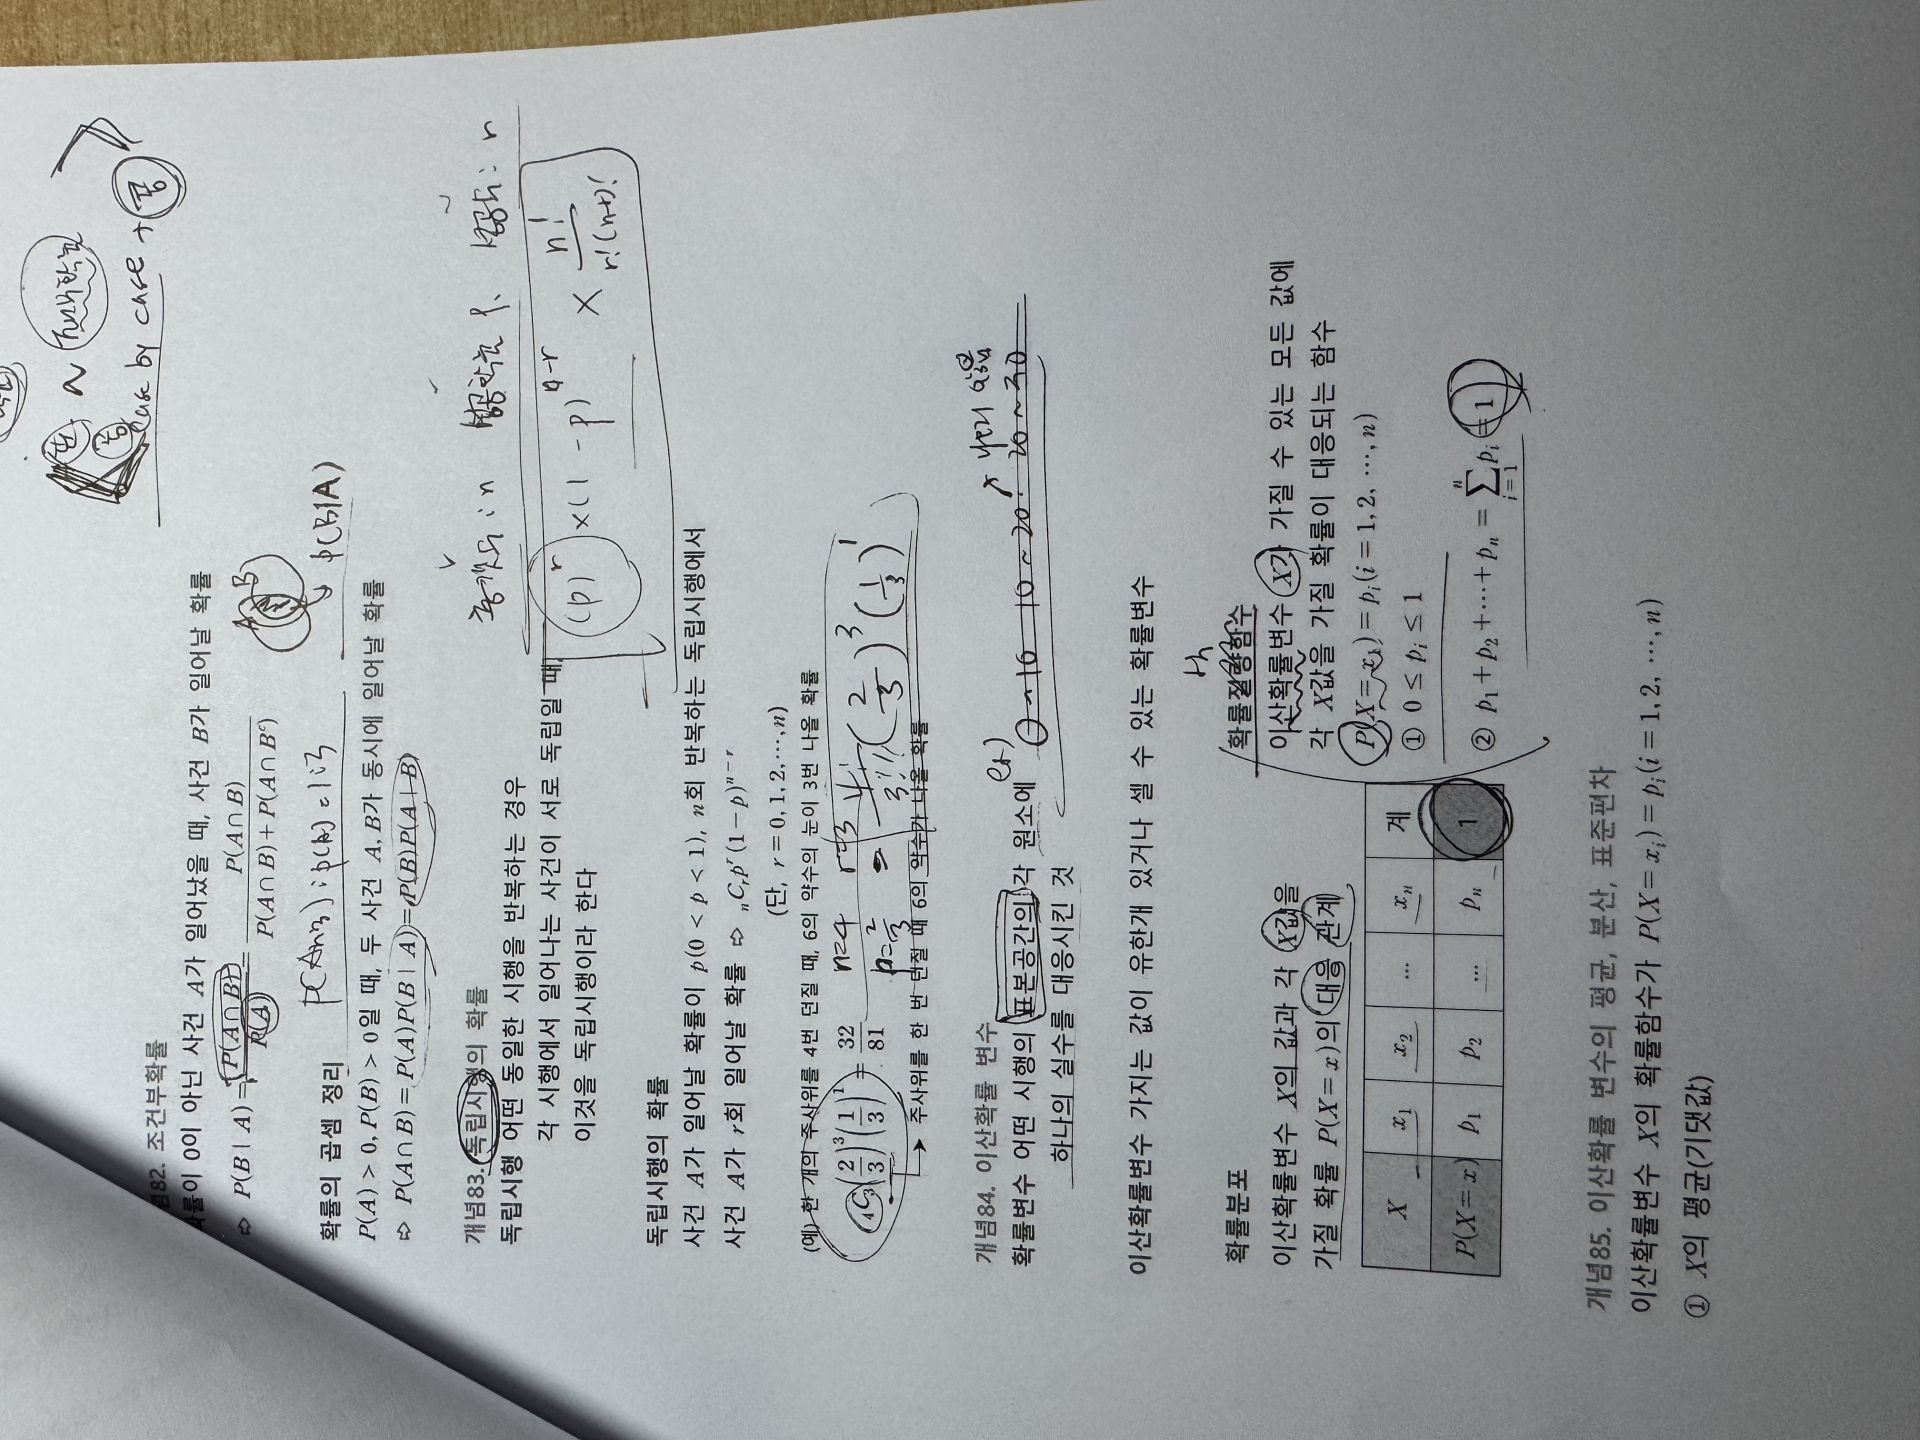 case by case + 품
념82. 조건부확률
확률이 0이 아닌 사건 A가 일어났을 때, 사건 B가 일어날 확률
⇨ P(B | A) = P(A∩B) / P(A) = P(A∩B) / P(A∩B)+P(A∩Bᶜ)
A B
P(B|A)
확률의 곱셈 정리
P(A) > 0, P(B) > 0일 때, 두 사건 A, B가 동시에 일어날 확률
⇨ P(A∩B) = P(A)P(B | A) = P(B)P(A | B)
개념83. 독립시행의 확률
독립시행 어떤 동일한 시행을 반복하는 경우
각 시행에서 일어나는 사건이 서로 독립일 때,
이것을 독립시행이라 한다
총횟수 : n 성공확률 P, 성공횟수 : r
(p)ʳ ×(1-p)ⁿ⁻ʳ × n! / r!(n-r)!
독립시행의 확률
사건 A가 일어날 확률이 p(0 < p < 1), n회 반복하는 독립시행에서
사건 A가 r회 일어날 확률 ⇨ ₙCᵣpʳ(1-p)ⁿ⁻ʳ
(단, r = 0, 1, 2, ⋯, n)
(예) 한 개의 주사위를 4번 던질 때, 6의 약수의 눈이 3번 나올 확률
₄C₃(2/3)³(1/3)¹ = 32/81
n=4 r=3
p=2/3
= 4! / 3!1! (2/3)³ (1/3)¹
→ 주사위를 한 번 던질 때 6의 약수가 나올 확률
개념84. 이산확률 변수
확률변수 어떤 시행의 표본공간의 각 원소에
하나의 실수를 대응시킨 것
0~10 10~20. 20~30
이산확률변수 가지는 값이 유한개 있거나 셀 수 있는 확률변수
확률분포
이산확률변수 X의 값과 각 X값을
가질 확률 P(X = x)의 대응 관계
X x₁ x₂ ⋯ xₙ 계
P(X = x) p₁ p₂ ⋯ pₙ 1
확률질량함수
이산확률변수 X가 가질 수 있는 모든 값에
각 X값을 가질 확률이 대응되는 함수
P(X = xᵢ) = pᵢ(i = 1, 2, ⋯, n)
① 0 ≤ pᵢ ≤ 1
② p₁ + p₂ + ⋯ + pₙ = Σⁿᵢ₌₁ pᵢ = 1
개념85. 이산확률 변수의 평균, 분산, 표준편차
이산확률변수 X의 확률함수가 P(X = xᵢ) = pᵢ(i = 1, 2, ⋯, n)
① X의 평균(기댓값)